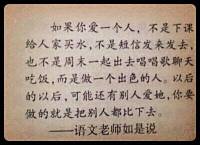 如果你爱一个人，不是下课
给人家买水，不是短信发来发去，
也不是周末一起出去唱唱歌聊聊天
吃饭，而是做一个出色的人。以后
的以后，可能还有别人爱她，你要
做的就是把别人都比下去。
——语文老师如是说